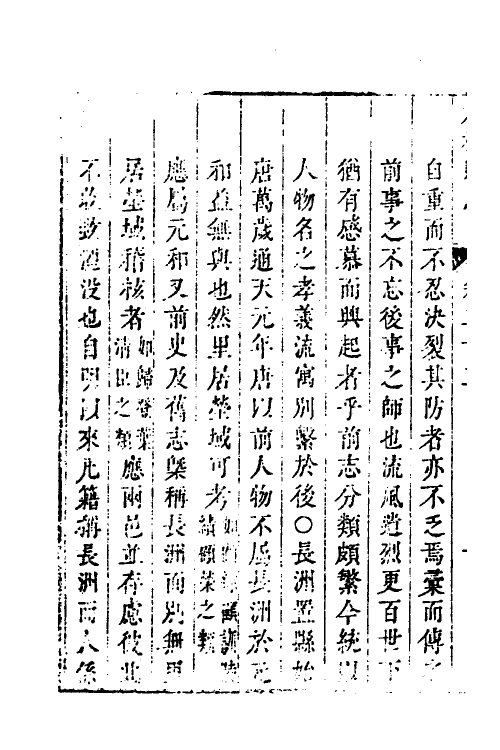 自重而不忍決裂其防者亦不乏焉彙而傳之
前事之不忘後事之師也流風遺烈更百世下
猶有感慕而興起者乎前志分類頗繁今統以
人物名之孝義流寓別繫於後○長洲置縣始
唐萬歲通天元年唐以前人物不屬長洲於元
和益無與也然里居塋域可考 績顧榮之類
應屬元和又前史及舊志槩稱長洲而別無里
居塋域稽核者 如歸登葉清臣之類 應兩邑並存慮彼此
不收致湮沒也自明以來凡籍稱長洲而人係